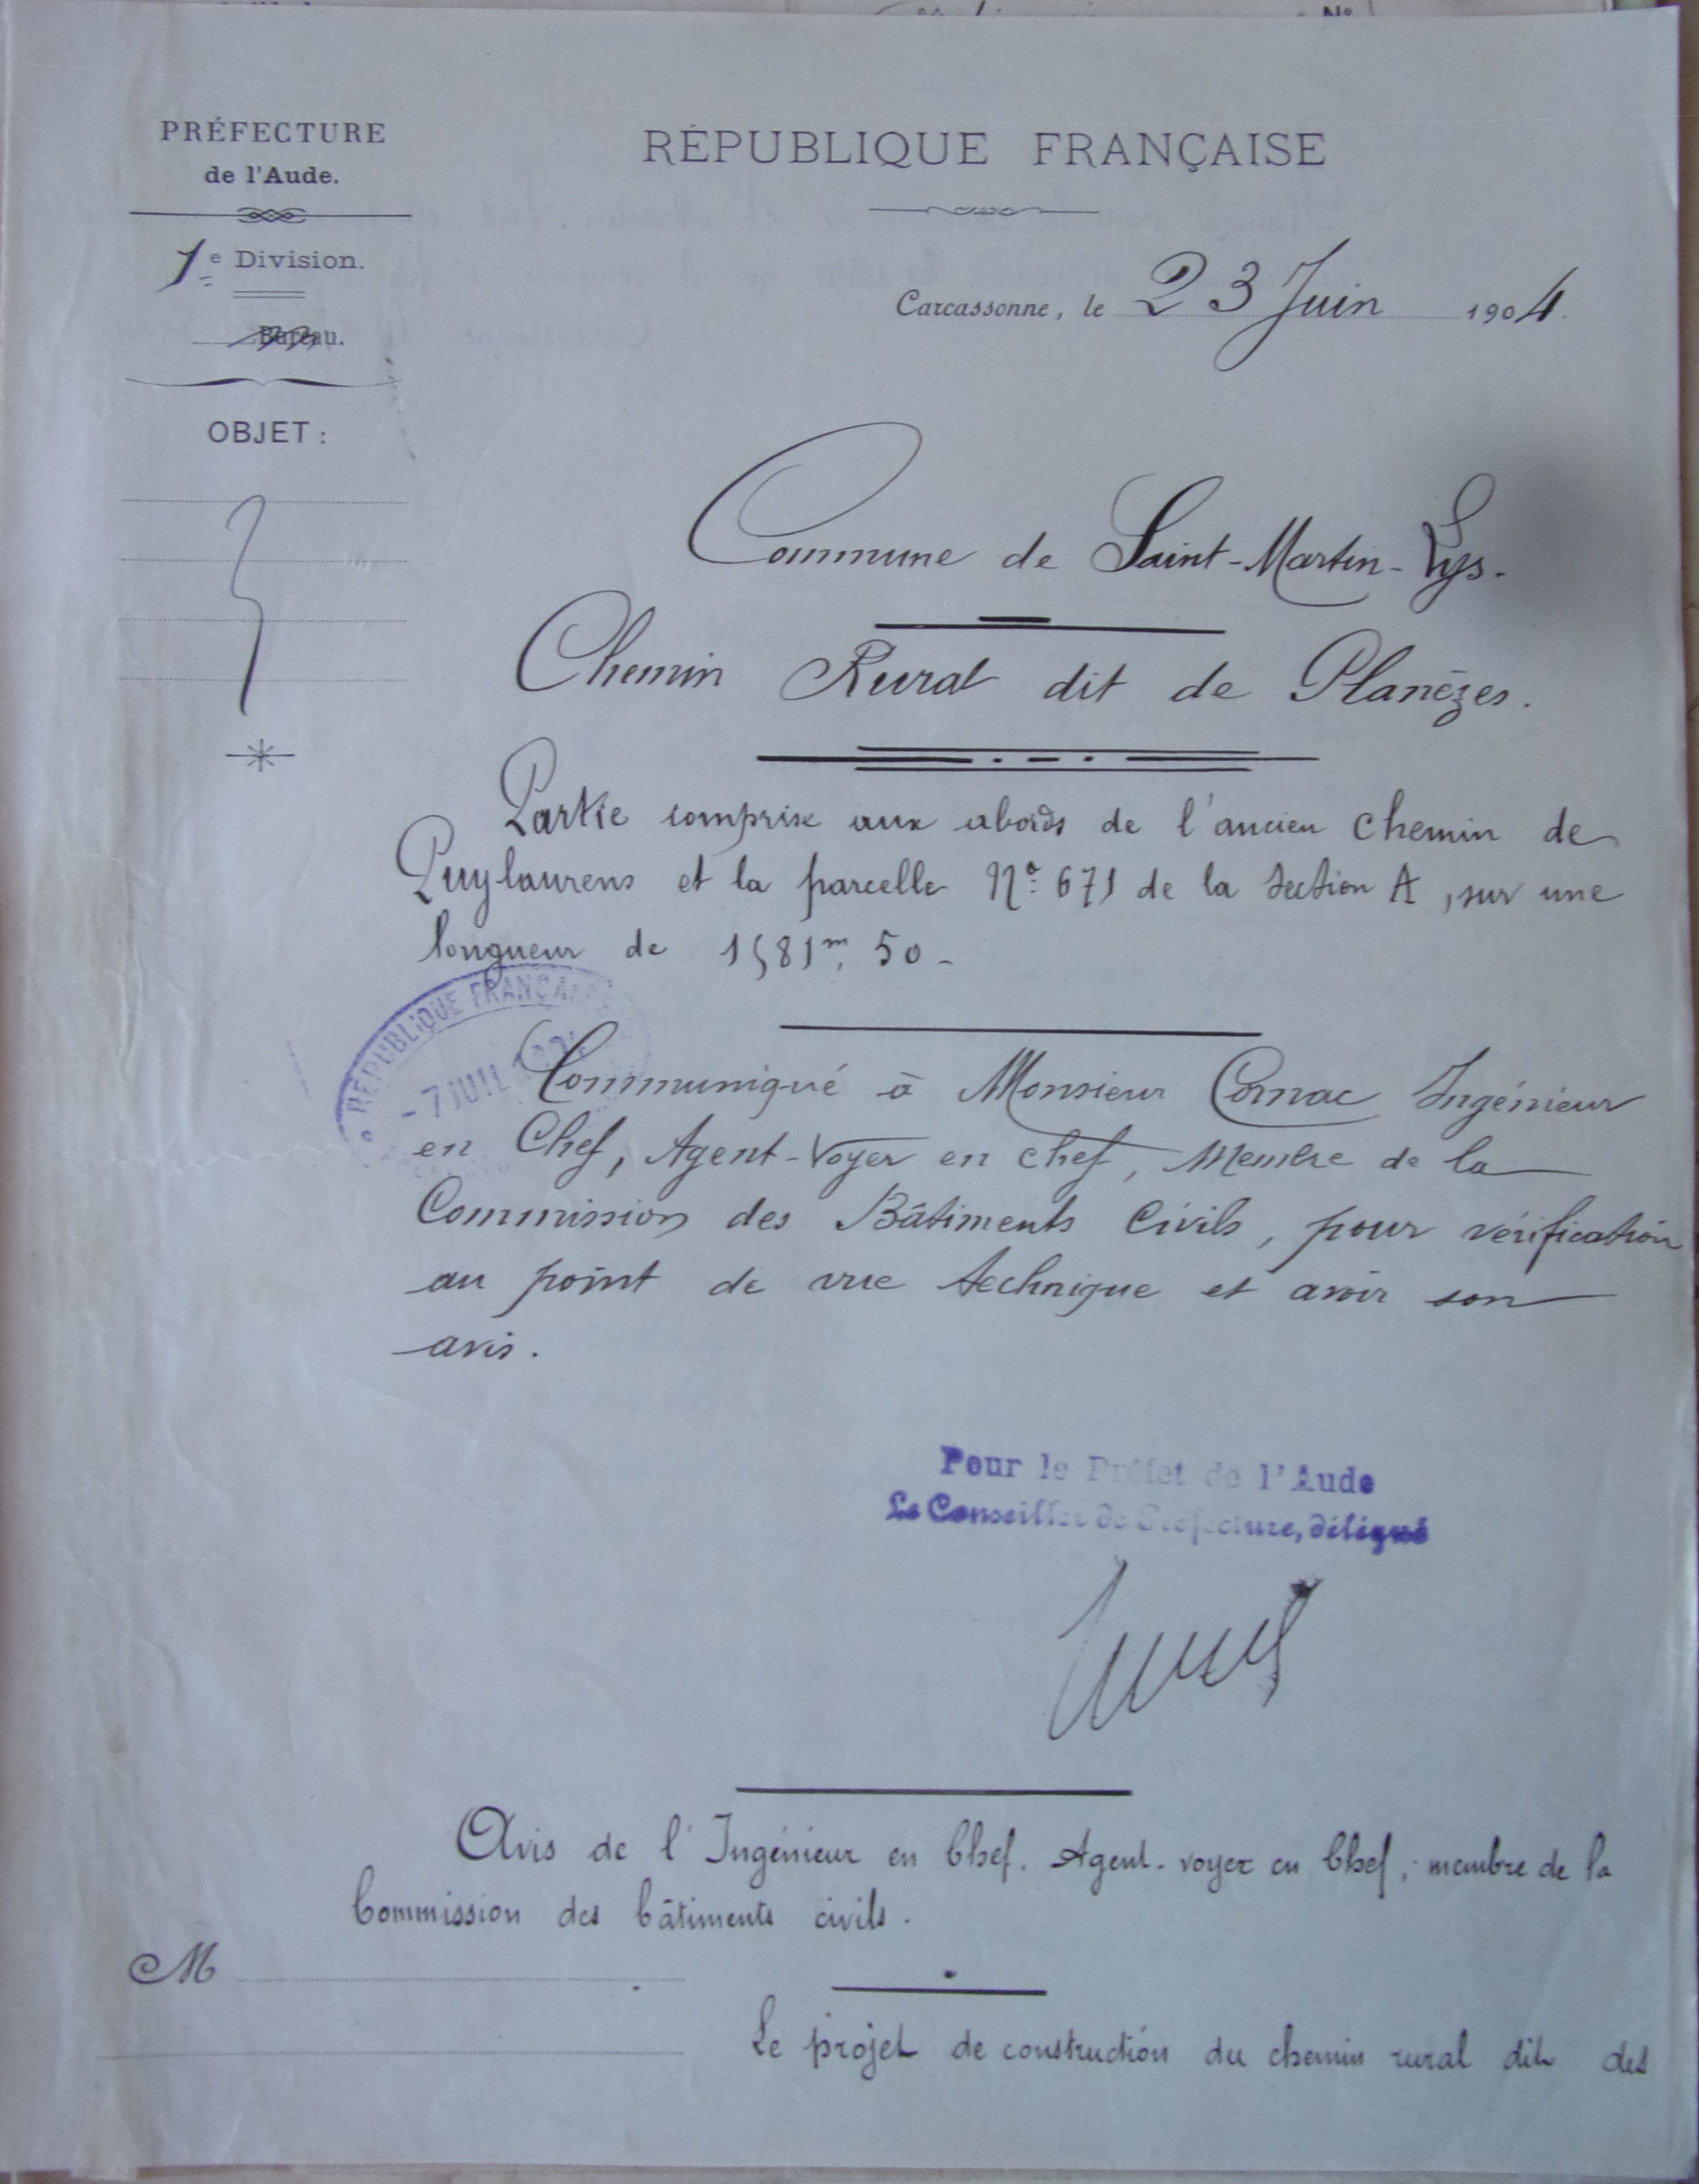 PRÉFECTURE
de l'Aude.
1e Division.
Bureau.
OBJET :
RÉPUBLIQUE FRANÇAISE
Carcassonne, le 23 Juin 1904.
Commune de Saint-Martin-Lys.
Chemin Rural dit de Planèzes.
Partie comprise aux abords de l'ancien chemin de
Puylaurens et la parcelle N° 671 de la section A, sur une
longueur de 1581m, 50 -
RÉPUBLIQUE FRANÇAISE
- 7 JUIL 1904
Communiqué à Monsieur Cornac Ingénieur
en Chef, Agent-Voyer en chef, Membre de la
Commission des Bâtiments Civils, pour vérification
au point de vue technique et avoir son
avis.
Pour le Préfet de l'Aude
Le Conseiller de Préfecture, délégué
Avis de l'Ingénieur en Chef. Agent-voyer en Chef, membre de la
Commission des bâtiments civils.
M
Le projet de construction du chemin rural dit des